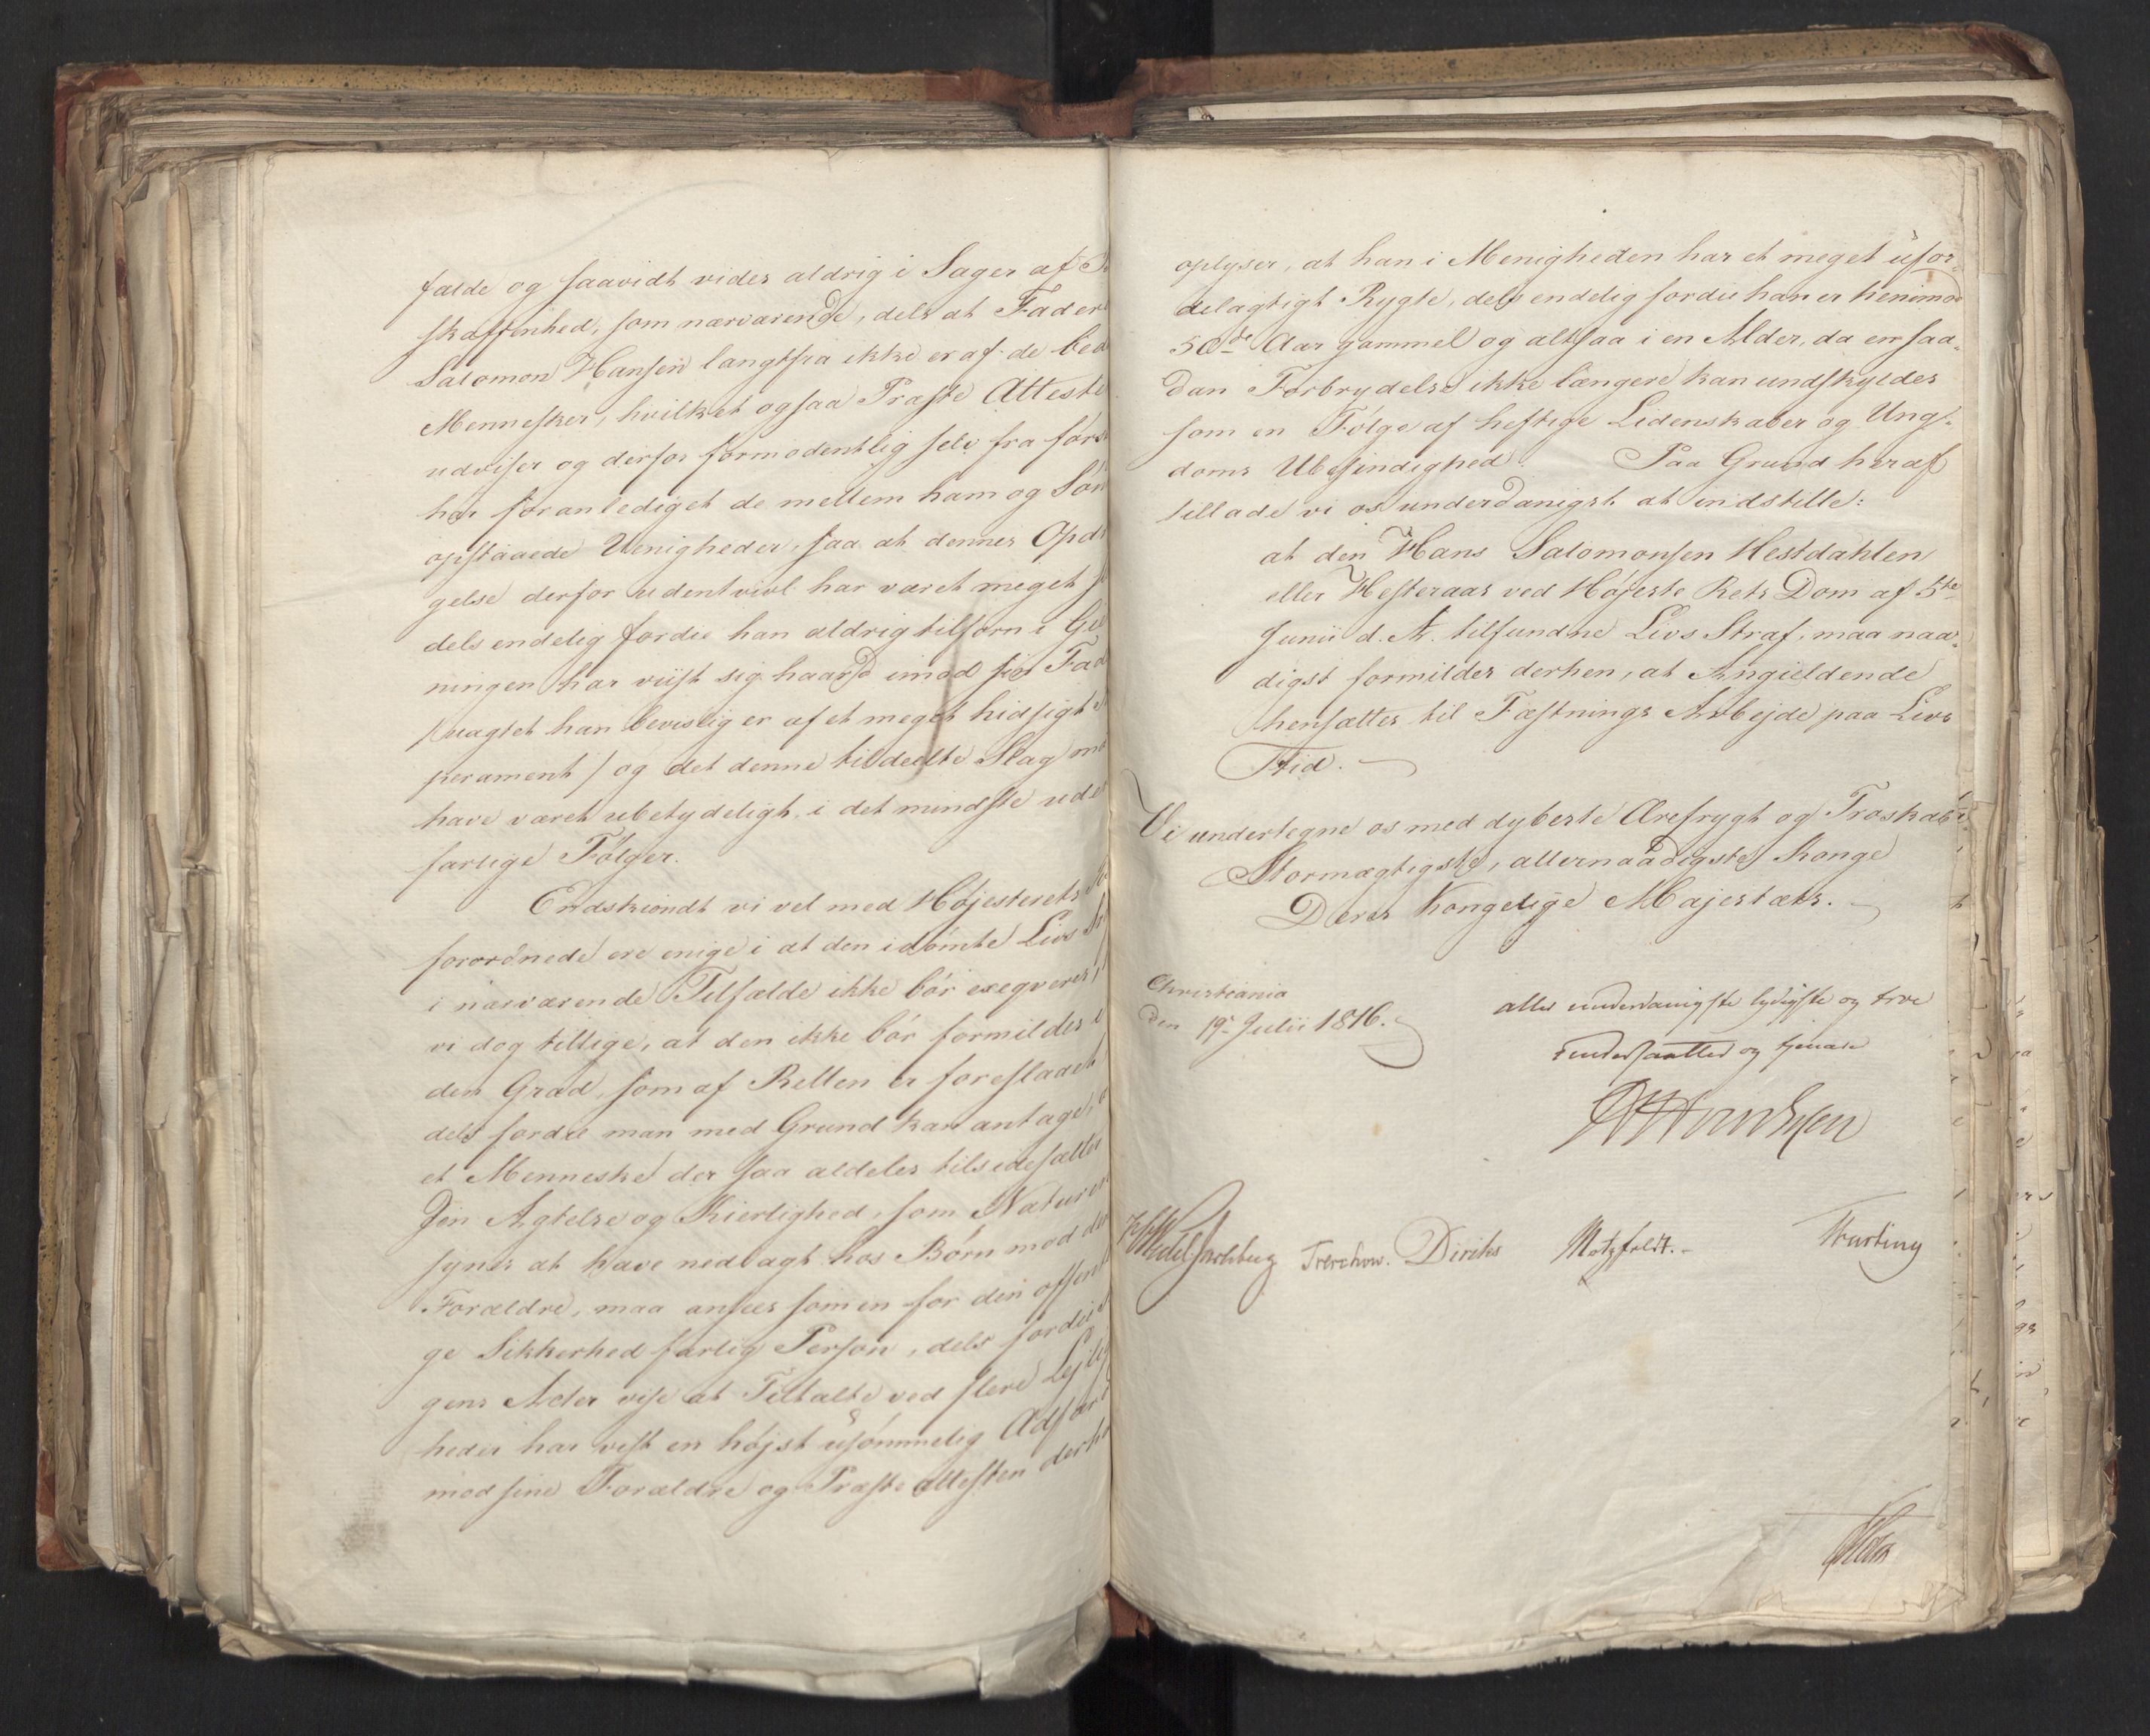 falde og saavidt vides aldrig i Sager af
skaffenhed, som nærværende, dels at Fader
Salomon Hansen langtfra ikke er af de bed
Mennesker, hvilket ogsaa Præste Atteste
udviser og derfor formodentlig selv fra først
har foranlediget de mellem ham og Søn
opstaaede Uenigheder, saa at dennes Opdr
gelse derfor udentvivl har været meget
dels endelig fordie han aldrig tilforn i Gier
ningen har viist sig haard imod sin Fad
/uagtet han bevislig er af et meget hidsigt
perament/ og det denne tildeelte Slag
have været ubetydeligt, i det mindste uden
farlige Følger.
Endskiøndt vi vel med Højesterets
forordnede ere enige i at den idømte Livs
i nærværende Tilfælde ikke bør exeqveres,
vi dog tillige, at den ikke bør formildes i
den Grad, som af Retten er foreslaaet
dels fordie man med Grund kan antage,
et Menneske der saa aldeles tilsidesætter
Den Agtelse og Kierlighed, som Naturen
synes at have nedlagt hos Børn mod der
Forældre, maa ansees som en for den offent
ge Sikkerhed farlig Person, dels fordie
gens Acter vise at Tiltalte ved flere Lejlig
heder har vist en højst usømmelig Adfærd
mod sine Forældre og Præste attesten derho
oplyser, at han i Menigheden har et meget ufor-
delagtigt Rygte, dels endelig fordie han er henimod
50de Aar gammel og altsaa i en Alder, da en saa-
dan Forbrydelse ikke længere kan undskyldes
som en Følge af heftige Lidenskaber og Ung-
doms Ubesindighed. Paa Grund heraf
tillade vi os underdanigst at indstille:
at den Hans Salomonsen Hestdahlen
eller Hesteraas ved Højeste Rets Dom af 5te
Junii d. A. tilfundne Livs Straf, maa naa-
digst formildes derhen, at Angieldende
hensættes til Fæstnings Arbejde paa Livs
Tid.
Vi undertegne os med dybeste Ærefrygt og Troskab
Stormægtigste, allernaadigste Konge
Deres Kongelige Majestæts.
Christiania
den 19de Julii 1816.
aller underdanigste lydigste og troe
undersaatter og tjenere
Wedel Jarlsberg Treschow. Diriks Motzfeldt.